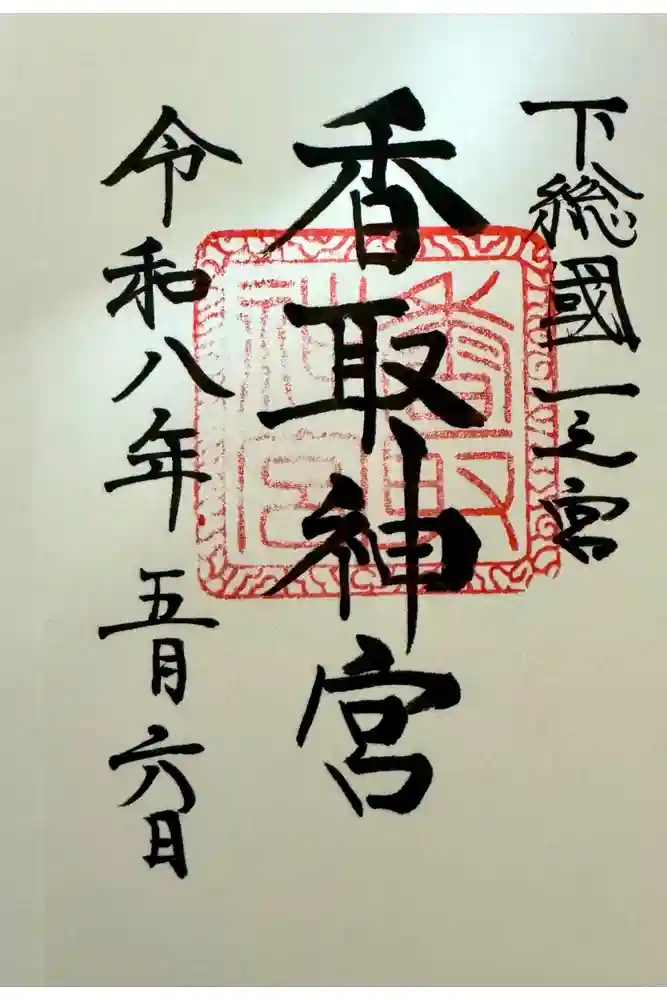 下総國一之宮
香取神宮
令和八年五月六日
香取神宮